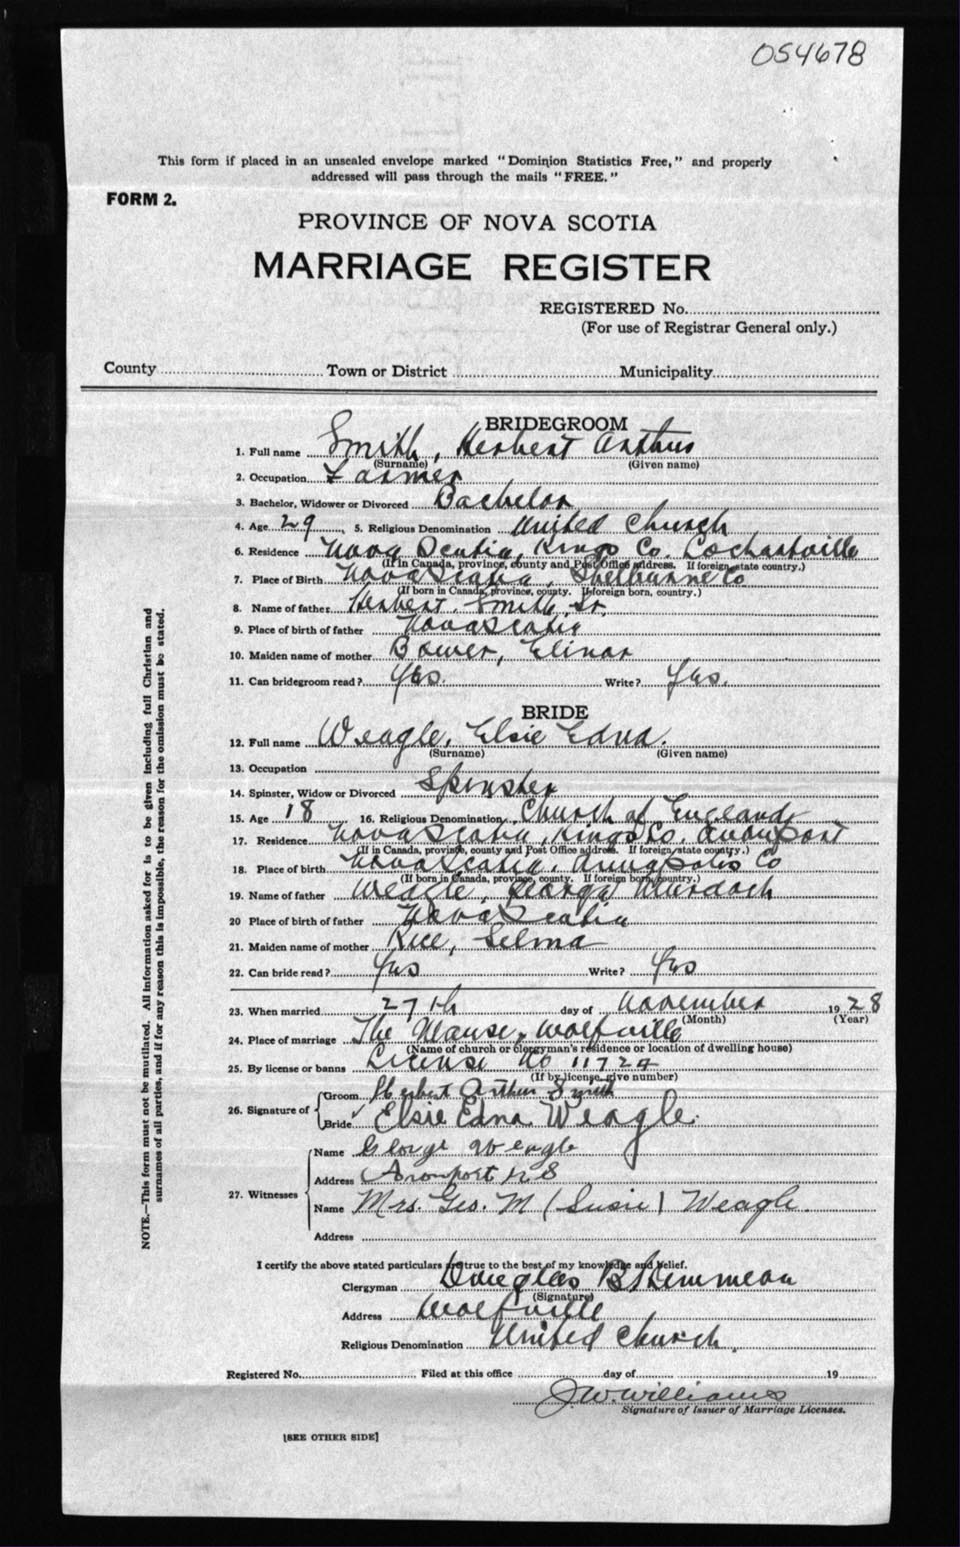 054678
This form if placed in an unsealed envelope marked "Dominion Statistics Free," and properly
addressed will pass through the mails "FREE."
FORM 2.
PROVINCE OF NOVA SCOTIA
MARRIAGE REGISTER
REGISTERED No.
(For use of Registrar General only.)
County Town or District Municipality
BRIDEGROOM
1. Full name Smith, Herbert Arthur
(Surname) (Given name)
2. Occupation Farmer
3. Bachelor, Widower or Divorced Bachelor
4. Age 29 5. Religious Denomination United Church
6. Residence Nova Scotia, Kings Co. Lockartville
(If in Canada, province, county and Post Office address. If foreign, state country.)
7. Place of Birth Nova Scotia, Shelburne Co
(If born in Canada, province, county. If foreign born, country.)
8. Name of father Herbert Smith, Sr.
9. Place of birth of father Nova Scotia
10. Maiden name of mother Bower, Elinor
11. Can bridegroom read? Yes. Write? Yes.
BRIDE
12. Full name Weagle, Elsie Edna.
(Surname) (Given name)
13. Occupation
14. Spinster, Widow or Divorced Spinster
15. Age 18 16. Religious Denomination Church of England
17. Residence Nova Scotia, Kings Co. Avonport
(If in Canada, province, county and Post Office address. If foreign, state country.)
18. Place of birth Nova Scotia, Annapolis Co
(If born in Canada, province, county. If foreign born, country.)
19. Name of father Weagle, George Murdoch
20 Place of birth of father Nova Scotia
21. Maiden name of mother Rice, Selma
22. Can bride read? Yes Write? Yes
23. When married 27th day of November 1928
(Month) (Year)
24. Place of marriage The Manse, Wolfville
(Name of church or clergyman's residence or location of dwelling house)
25. By license or banns License No 11724
(If by license, give number)
26. Signature of Groom Herbert Arthur Smith
Bride Elsie Edna Weagle.
27. Witnesses Name George Weagle
Address Avonport N S
Name Mrs. Geo. M (Susie) Weagle.
Address
I certify the above stated particulars are true to the best of my knowledge and belief.
Clergyman Douglas B
(Signature)
Address Wolfville
Religious Denomination United Church.
Registered No. Filed at this office day of 19
J.W. Williams
Signature of Issuer of Marriage Licenses.
[SEE OTHER SIDE]
NOTE.—This form must not be mutilated. All information asked for is to be given including full Christian and
surnames of all parties, and if for any reason this is impossible, the reason for the omission must be stated.